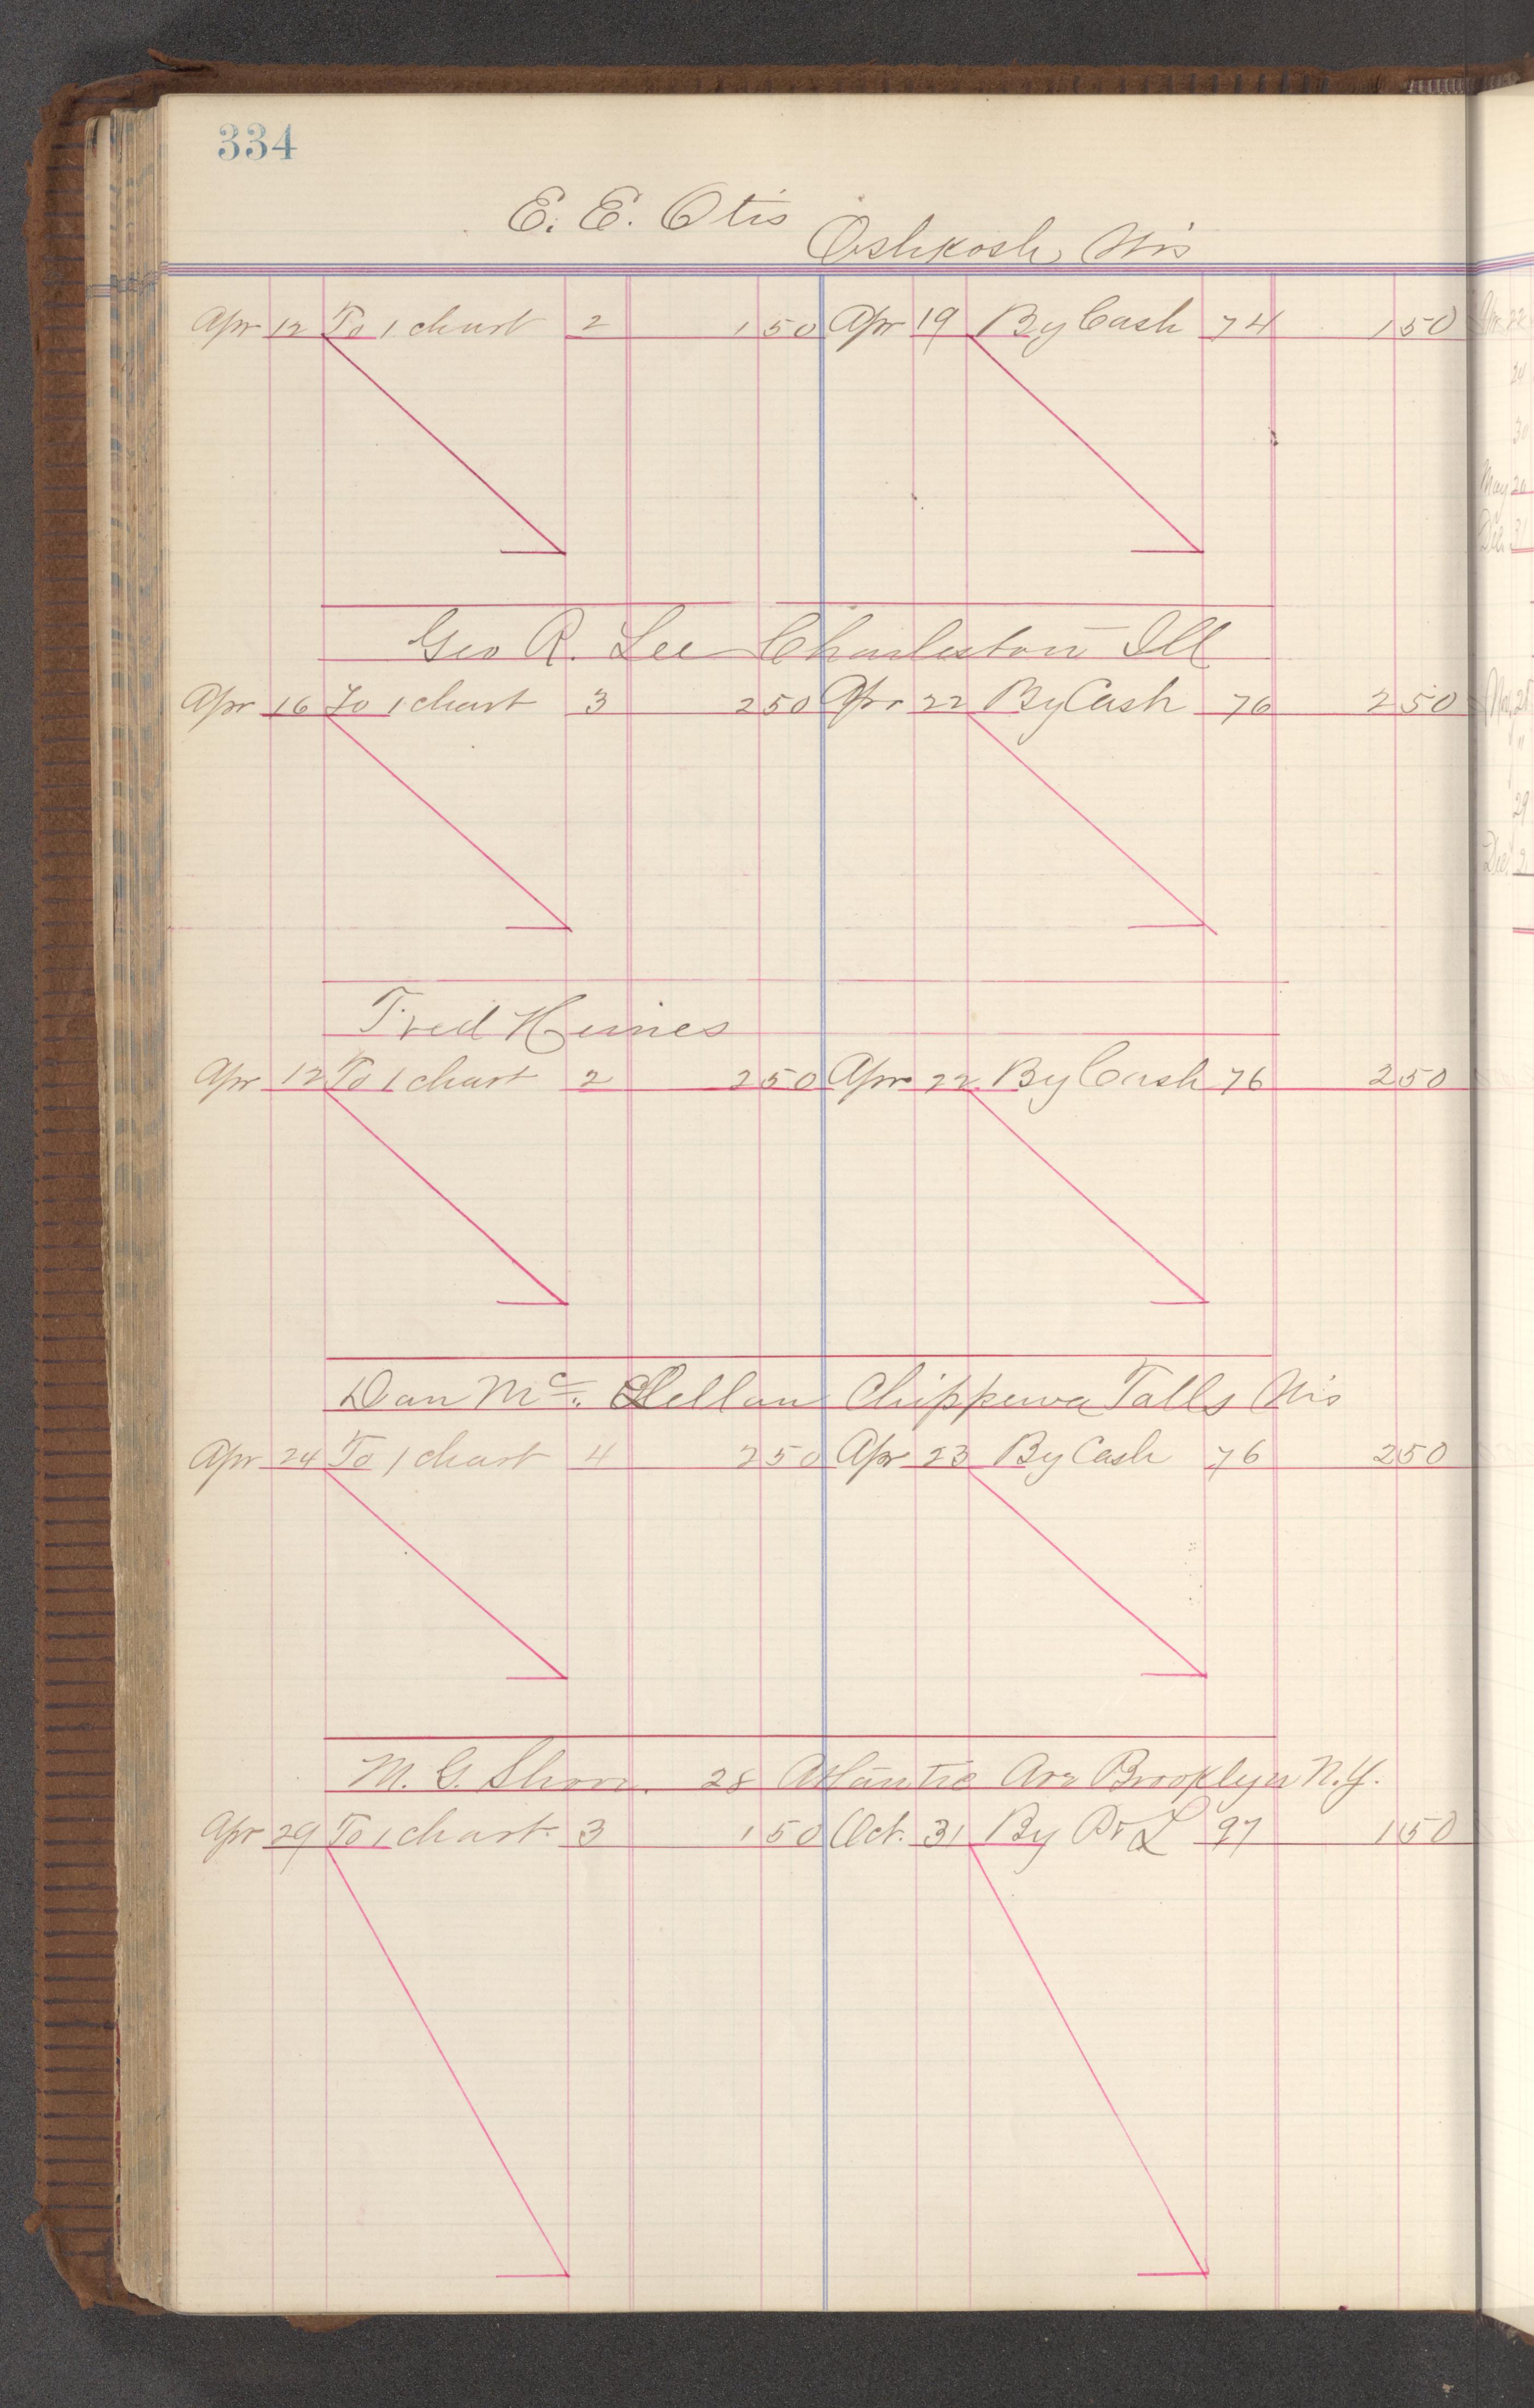 334
E. E. Otis
Oshkosh, Wis
Apr 12 To 1 chart 2 1 50 Apr 19 By Cash 74 1 50
Geo R. Lee Charleston Ill
Apr 16 To 1 chart 3 2 50 Apr 22 By Cash 76 2 50
Fred Heines
Apr 12 To 1 chart 2 2 50 Apr 22 By Cash 76 2 50
Dan Mc. Clellan Chippewa Falls Wis
Apr 24 To 1 chart 4 2 50 Apr 23 By Cash 76 2 50
M. G. 28 Atlantic Ave Brooklyn N.Y.
Apr 29 To 1 chart 3 1 50 Oct. 31 By Pr L 97 1 50
24
30
May 20
Dec 31
29
Dec